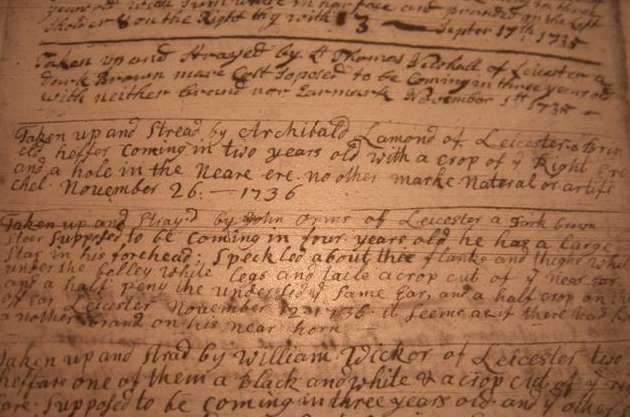 year
Shoter & on the Right thy with 13 — Septer 17th 1735
Taken up and Strayed by Lt Thomas of Leicester a
Dark Brown mare Colt Soposed to be Coming in three years old
with neither brand nor Earmark November 1st 1735 —
Taken up and Stread by Archibald Lamond of Leicester a Brin
eld heffer coming in two years old with a crop of ye Right
and a hole in the Neare ere no other marke Nateral or artifi
chel November 26 — 1736
Taken up and Stray'd by John of Leicester a Dark brown
Steer Supposed to be Coming in four years old he has a large
Star in his forehead; Speckled about thee flanks and thighs
under the belley white Legs and taile a crop cut of ye near
and a half peny the underside ye Same Ear, and a half crop on
of Ear Leicester November 12 1736 it seems as if there was
another brand on his near horn
Taken up and Strad by William Wicker of Leicester two
heffers one of them a Black and white & a crop cut of ye
Supposed to be coming in three years old and